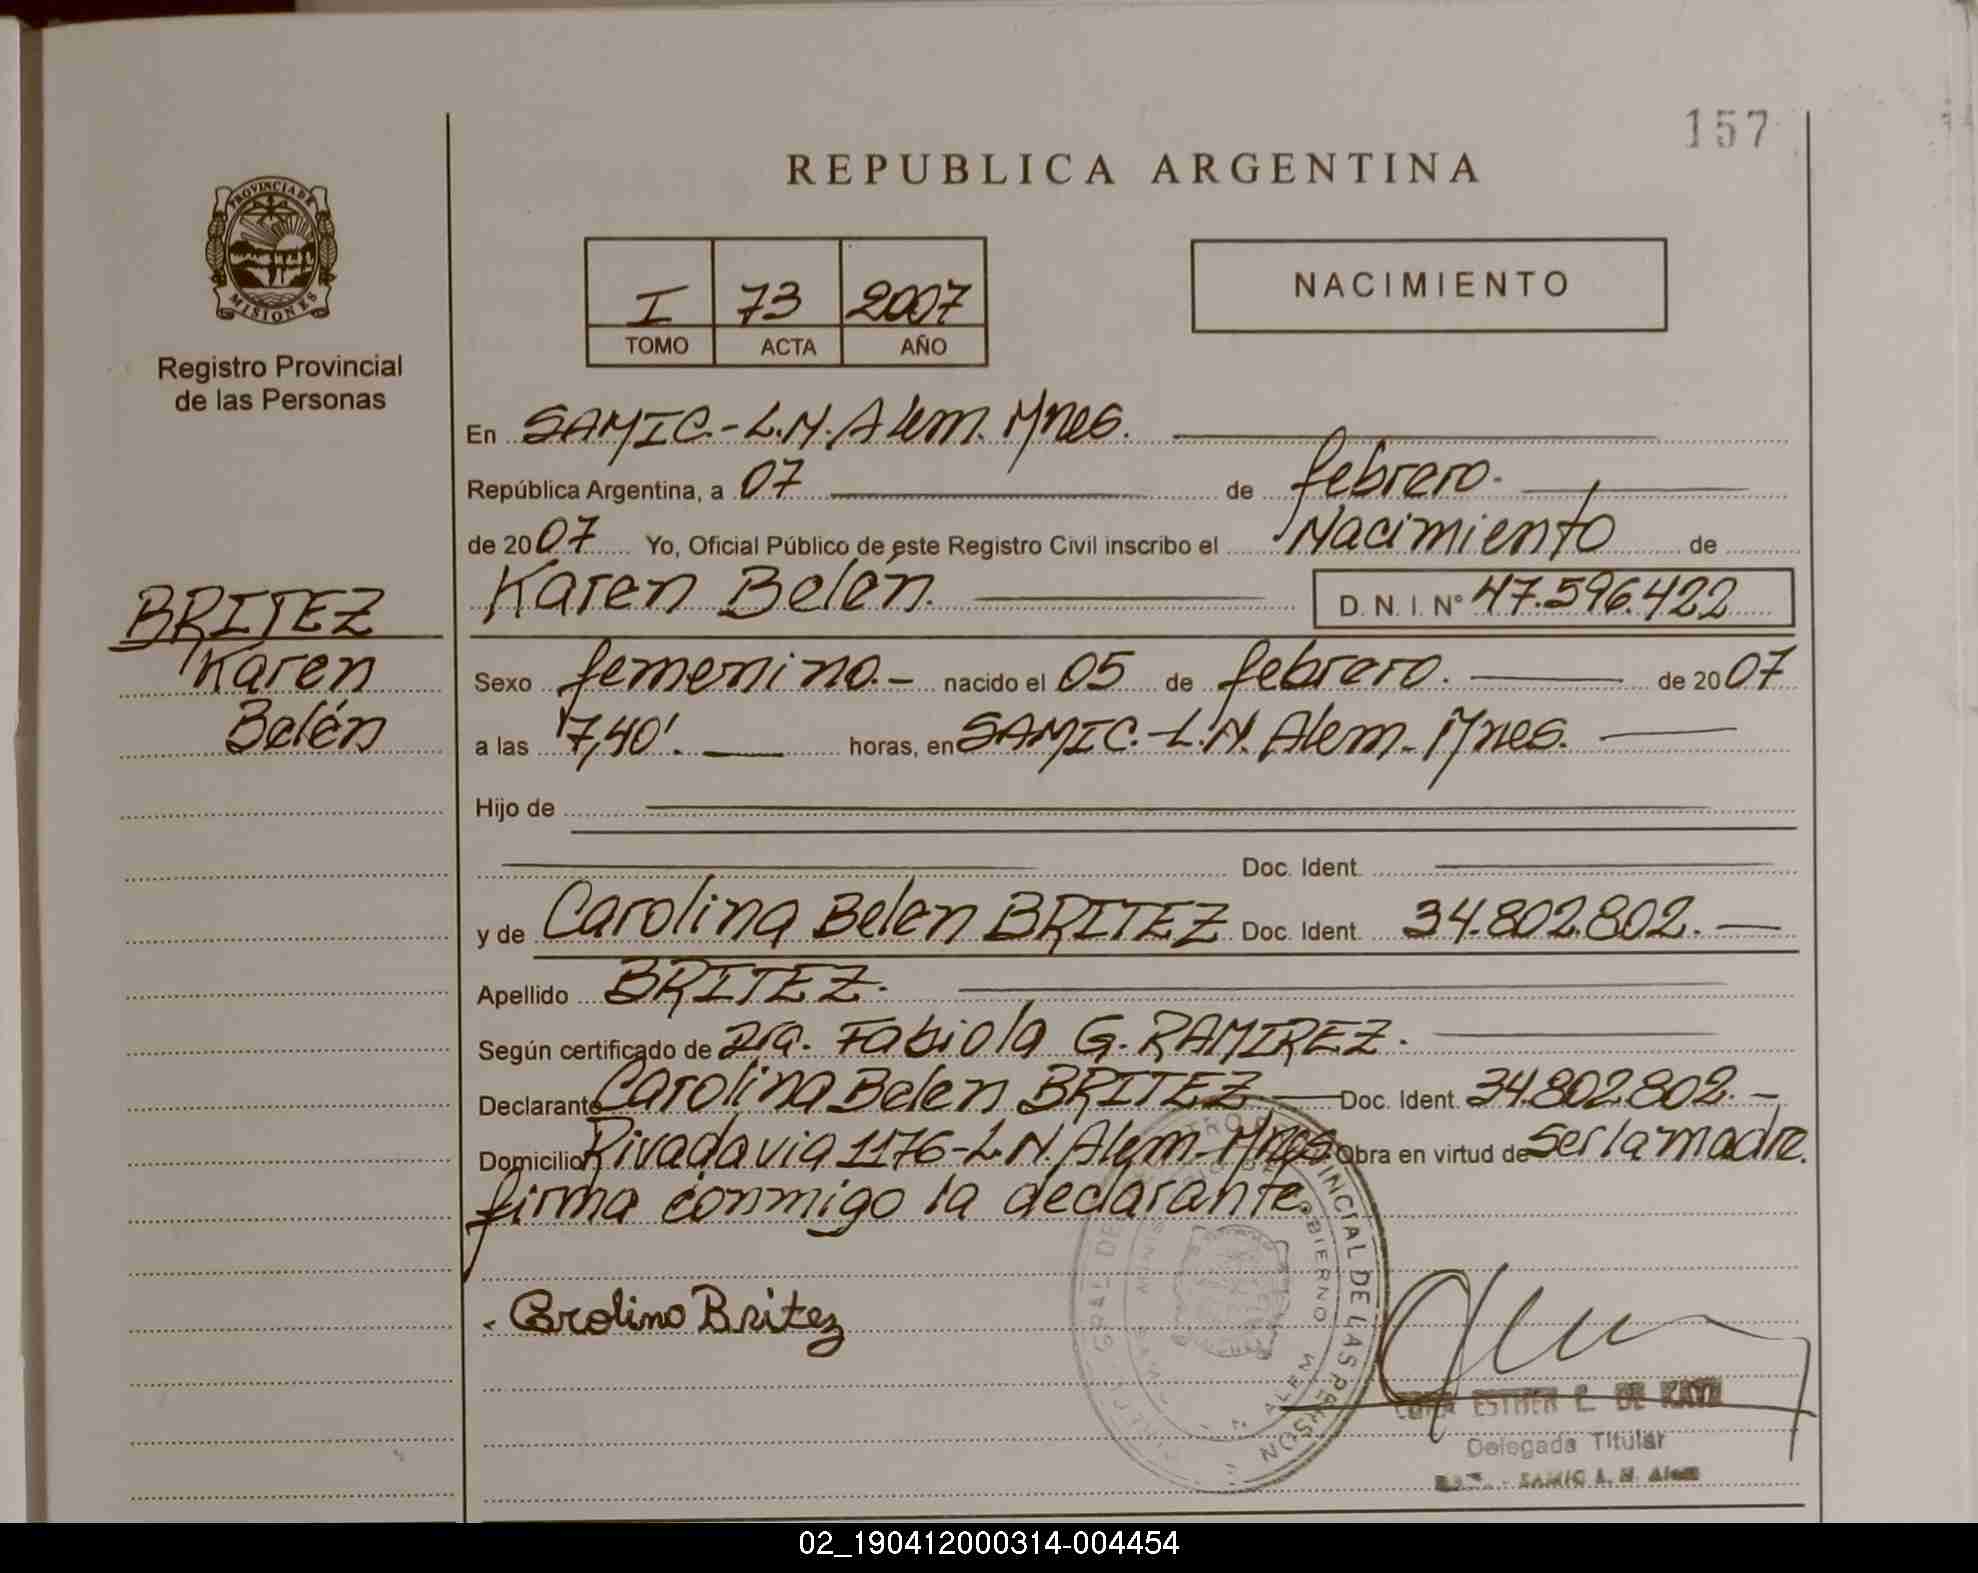 157
REPUBLICA ARGENTINA
PROVINCIA DE
MISIONES
Registro Provincial
de las Personas
I 73 2007
TOMO ACTA AÑO
NACIMIENTO
En SAMIC.-L.N.Alem. Mnes.
República Argentina, a 07 de febrero.
de 2007 Yo, Oficial Público de este Registro Civil inscribo el Nacimiento de
Karen Belén. D. N. I. N° 47.596.422
BRITEZ
Karen
Belén
Sexo femenino.- nacido el 05 de febrero. de 2007
a las 7,40'. horas, en SAMIC.-L.N. Alem. Mnes.
Hijo de
Doc. Ident.
y de Carolina Belen BRITEZ Doc. Ident. 34.802.802.
Apellido BRITEZ.
Según certificado de Dra. Fabiola G. RAMIREZ.
Declarante Carolina Belen BRITEZ Doc. Ident. 34.802.802.-
Domicilio Rivadavia 1176-L.N. Alem-Mnes Obra en virtud de ser la madre.
firma conmigo la declarante.
Carolina Britez
ESTHER E. DE
Delegada Titular
SAMIC L. N. Alem
02_190412000314-004454